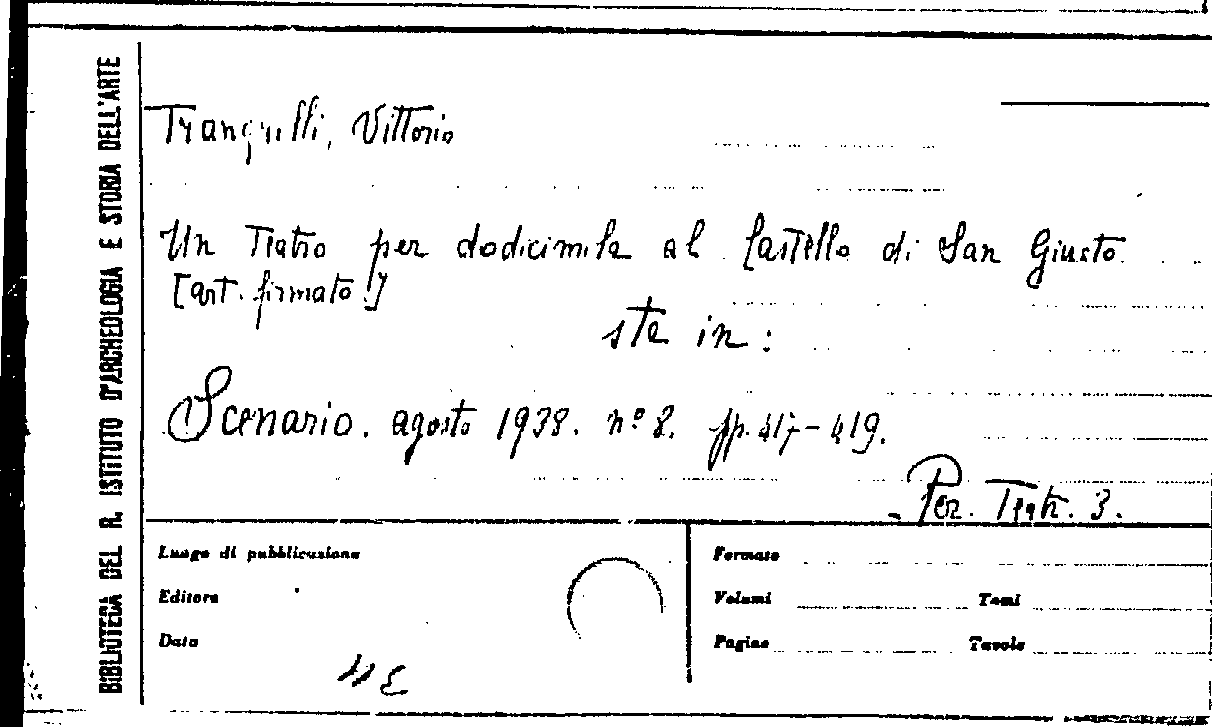 BIBLIOTECA DEL R. ISTITUTO D'ARCHEOLOGIA E STORIA DELL'ARTE
Tranquilli, Vittorio
Un Teatro per dodicimila al Castello di San Giusto
[art. firmato!]
sta in:
Scenario. agosto 1938. nº 8. pp. 417-419.
Per. Teatr. 3.
Luogo di pubblicazione
Editore
Data
Formato
Volumi Tomi
Pagine Tavole